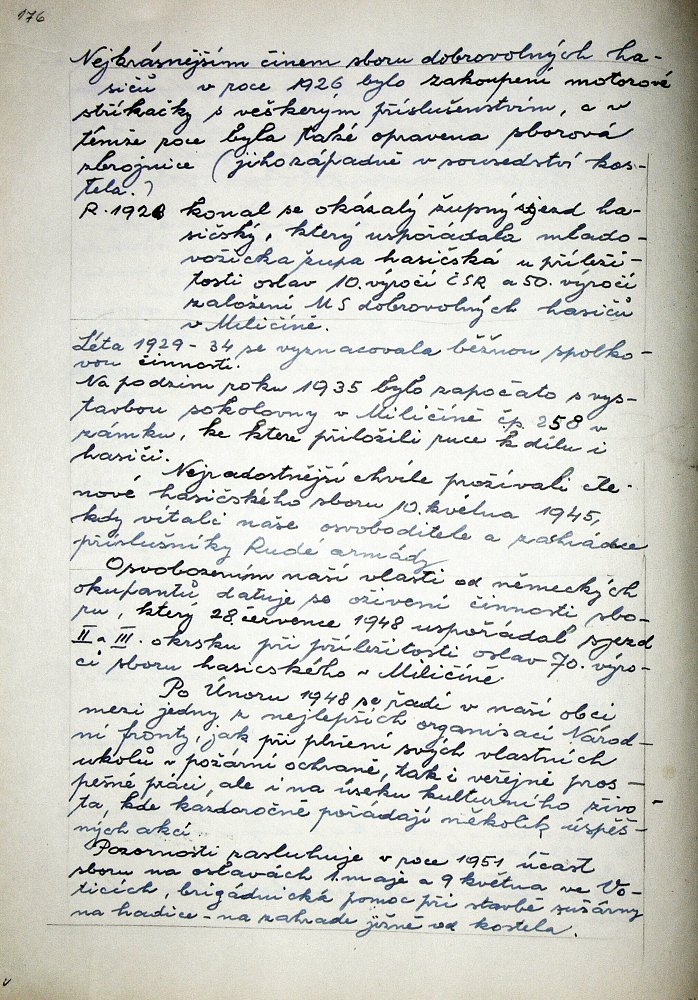 176
Nejkrásnějším činem sboru dobrovolných ha-
sičů v roce 1926 bylo zakoupení motorové
stříkačky s veškerým příslušenstvím, a v
témže roce byla také opravena sborová
zbrojnice (jihozápadně v sousedství kos-
tela.)
R. 1928 konal se okázalý župný sjezd ha-
sičský, který uspořádala mlado-
vožická župa hasičská u příleži-
tosti oslav 10. výročí ČSR a 50. výročí
založení MS dobrovolných hasičů
v Miličíně.
Léta 1929 - 34 se vyznacovala běžnou spolko-
vou činností.
Na podzim roku 1935 bylo započato s vys-
tavbou sokolovny v Miličíně čp. 258 v
zámku, ke které přiložili ruce k dílu i
hasiči.
Nejradostnější chvíle prožívali čle-
nové hasičského sboru 10. května 1945,
kdy vítali naše osvoboditele a zahrádce
příslušníky Rudé armády
Osvobozením naší vlasti od německých
okupantů datuje se oživení činnosti sbo-
ru, který 28. července 1948 uspořádal sjezd
II a III. okrsku při příležitosti oslav 70. výro-
čí sboru hasicského v Miličíně.
Po Únoru 1948 se řadí v naší obci
mezi jedny z nejlepších organisací Národ-
ní fronty, jak při plnění svých vlastních
ukolů v požární ochraně, tak i veřejně pros-
pěšné práci, ale i na úseku kulturního živo-
ta, kde kazdoročně pořádají několik úspěš-
ných akcí.
Pozornosti zasluhuje v roce 1951 účast
sboru na oslavách 1. maje a 9 května ve Vo-
ticích, brigádnická pomoc při stavbě sušárny
na hadice - na zahrade jižně od kostela.